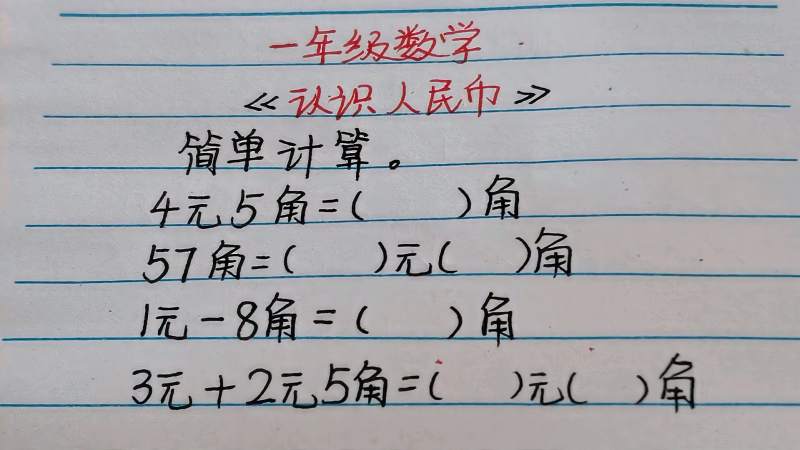 一年级数学
《认识人民币》
简单计算。
4元5角=(  )角
57角=(  )元(  )角
1元-8角=(  )角
3元+2元5角=(  )元(  )角